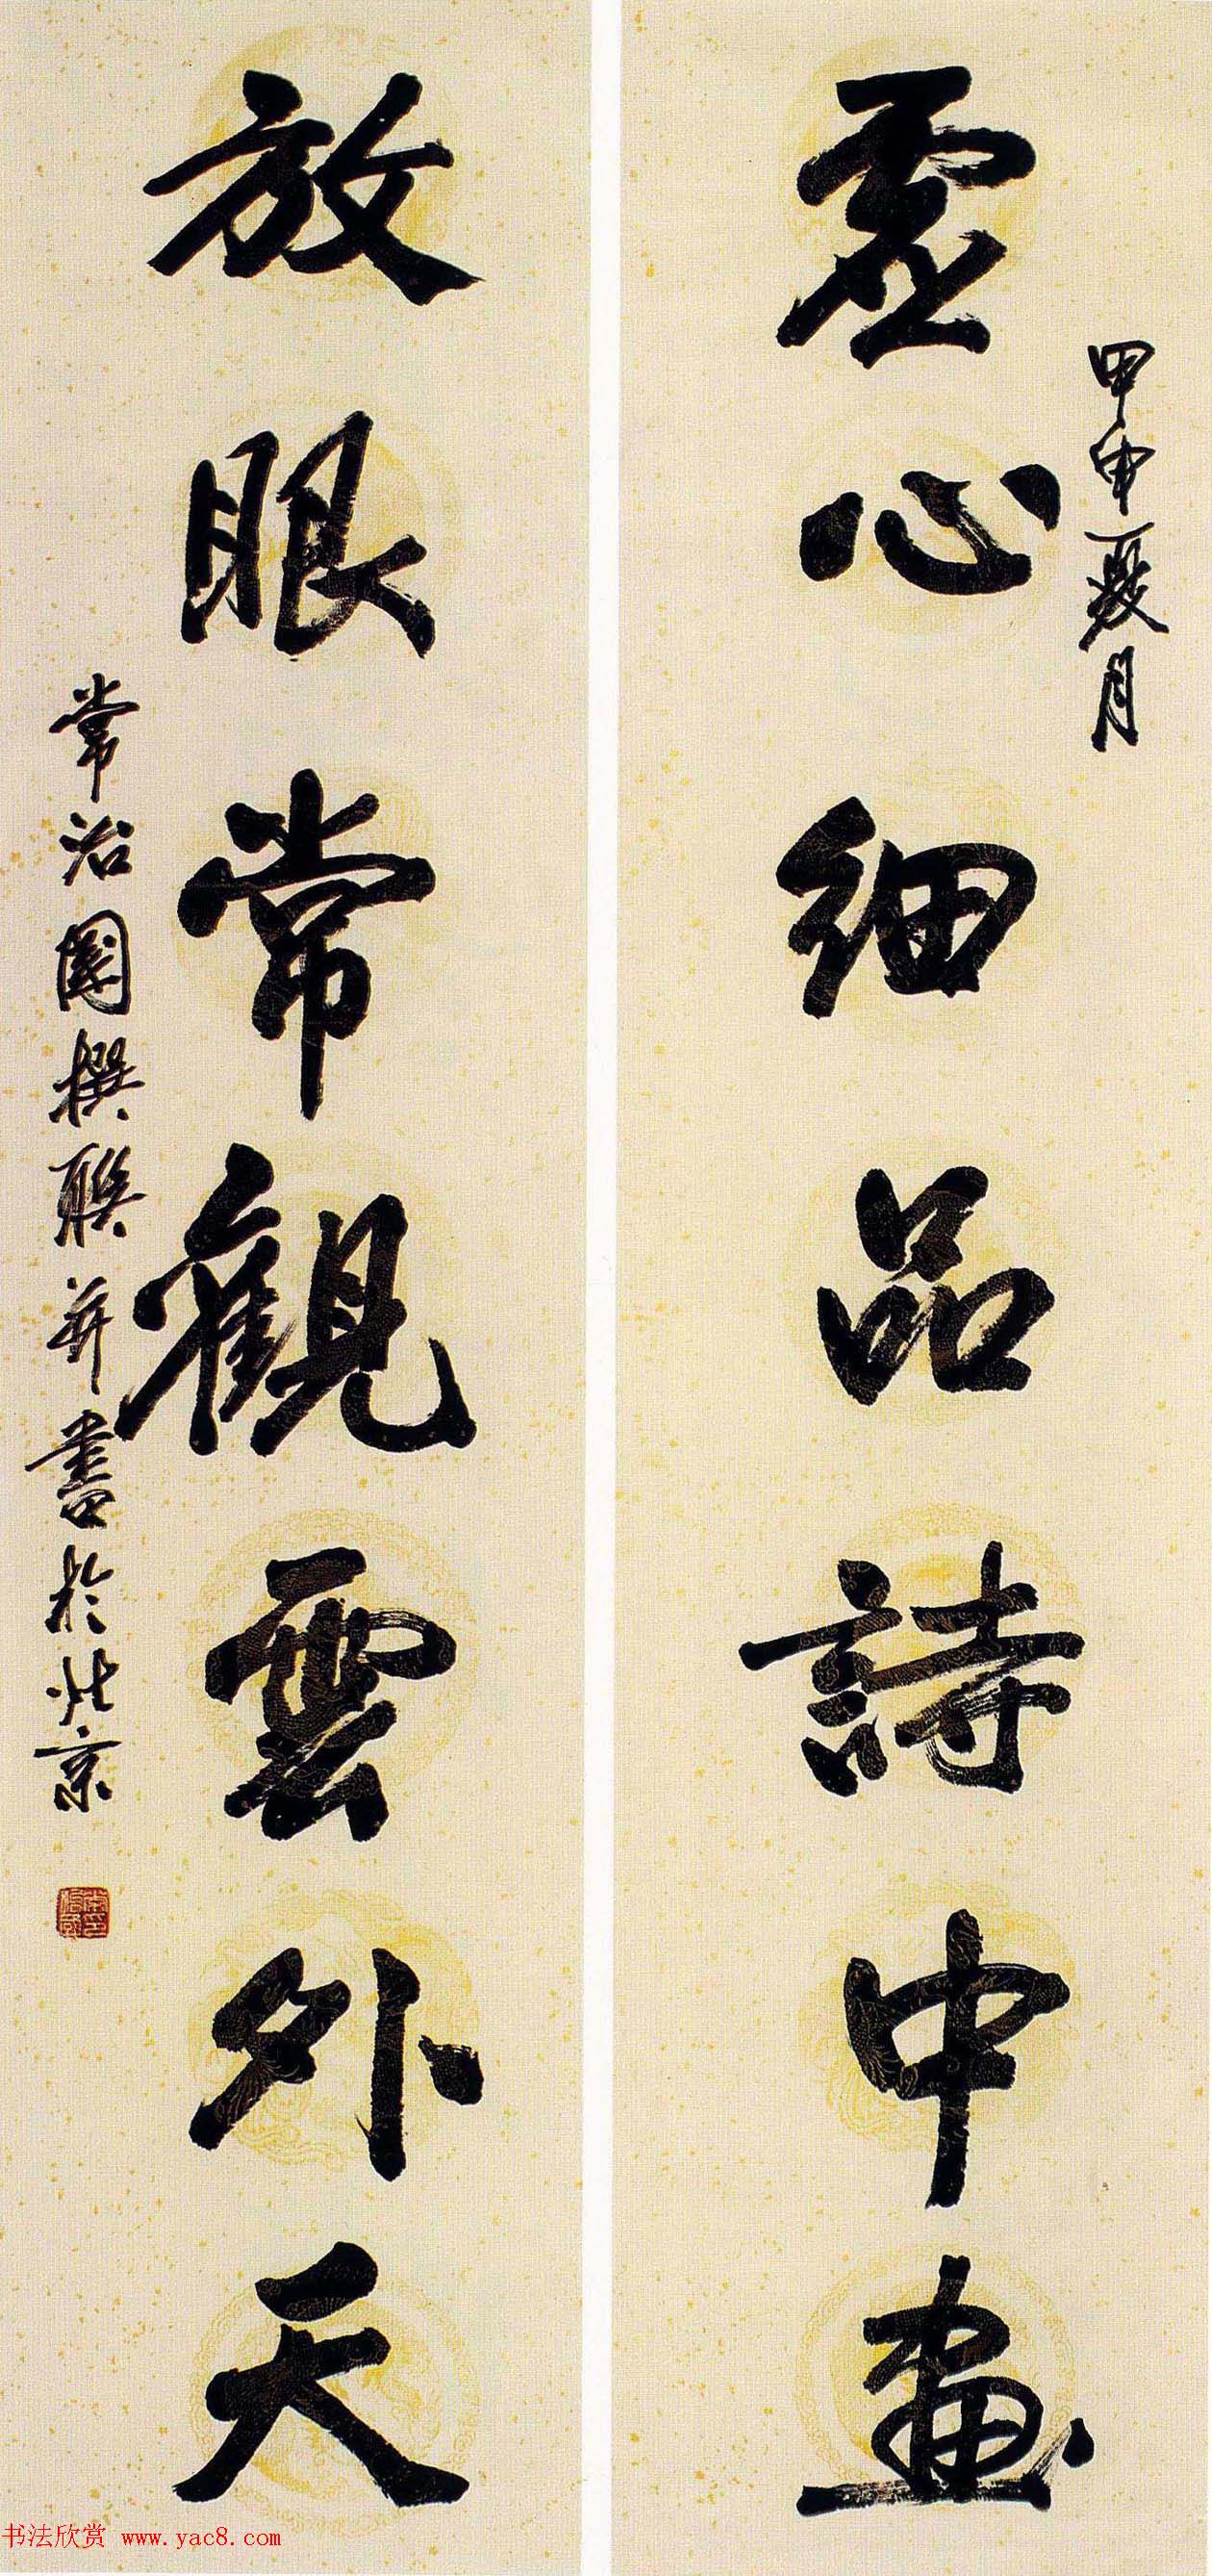 甲申夏月
虚心細品詩中畫
放眼常觀雲外天
常治國撰聯并書於北京
书法欣赏 www.yac8.com